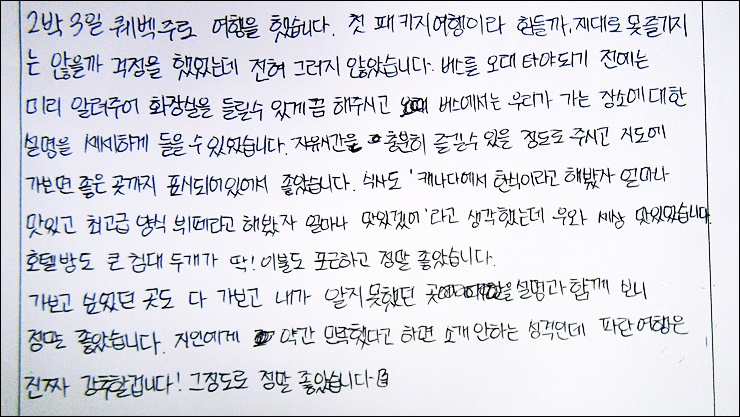 2박 3일 퀘벡주로 여행을 했습니다. 첫 패키지여행이라 힘들까, 제대로 못즐기지
는 않을까 걱정을 했었는데 전혀 그러지 않았습니다. 버스를 오래 타야되기 전에는
미리 알려주어 화장실을 들릴수 있게끔 해주시고 버스에서는 우리가 가는 장소에 대한
설명을 세세하게 들을 수 있었습니다. 자유시간을 충분히 즐길수 있을 정도로 주시고 지도에
가보면 좋은 곳까지 표시되어있어서 좋았습니다. 식사도 '캐나다에서 한식이라고 해봤자 얼마나
맛있고 최고급 양식 뷔페라고 해봤자 얼마나 맛있겠어'라고 생각했는데 우와 세상 맛있었습니다.
호텔방도 큰 침대 두개가 딱! 이불도 포근하고 정말 좋았습니다.
가보고 싶었던 곳도 다 가보고 내가 알지 못했던 설명과 함께 보니
정말 좋았습니다. 지인에게 약간 만족했다고 하면 소개 안하는 성격인데 파란여행은
진짜 강추할겁니다! 그정도로 정말 좋았습니다